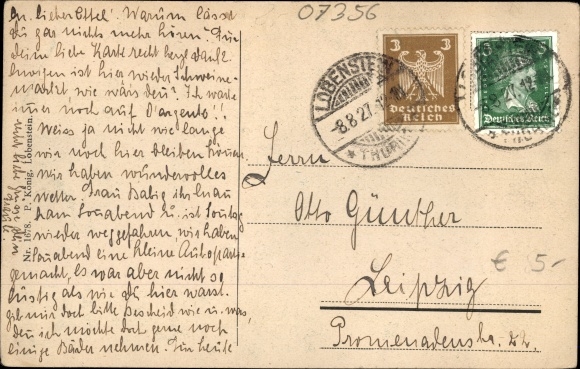 07356
M. lieber Ottel. Warum lässt
du gar nichts mehr hören? Für
deine liebe Karte recht herzl. dank!
morgen ist hier wieder Schweine-
markt, wie wärs denn? Ich warte
immer noch auf
Weiss ja nicht wie lange
wir noch hier bleiben können
wir haben wundervolles
Wetter. Frau
kam Sonnabend u. ist Sonntag
wieder weggefahren, wir haben
Sonabend eine kleine Autopart.
gemacht, Es war aber nicht so
lustig als wie du hier warst.
gib mir dort bitte Bescheid wie u. was,
den ich möchte dort gerne noch
einige Bäder nehmen. Für heute
Nr. 1678. P. König, Lobenstein.
LOBENSTEIN
-8.8.27.
* THÜR.
3 3
Deutsches
Reich
5 5
Deutsches Reich
Herrn
Otto Günther
€ 5-
Leipzig
Promenadenstr. 22.